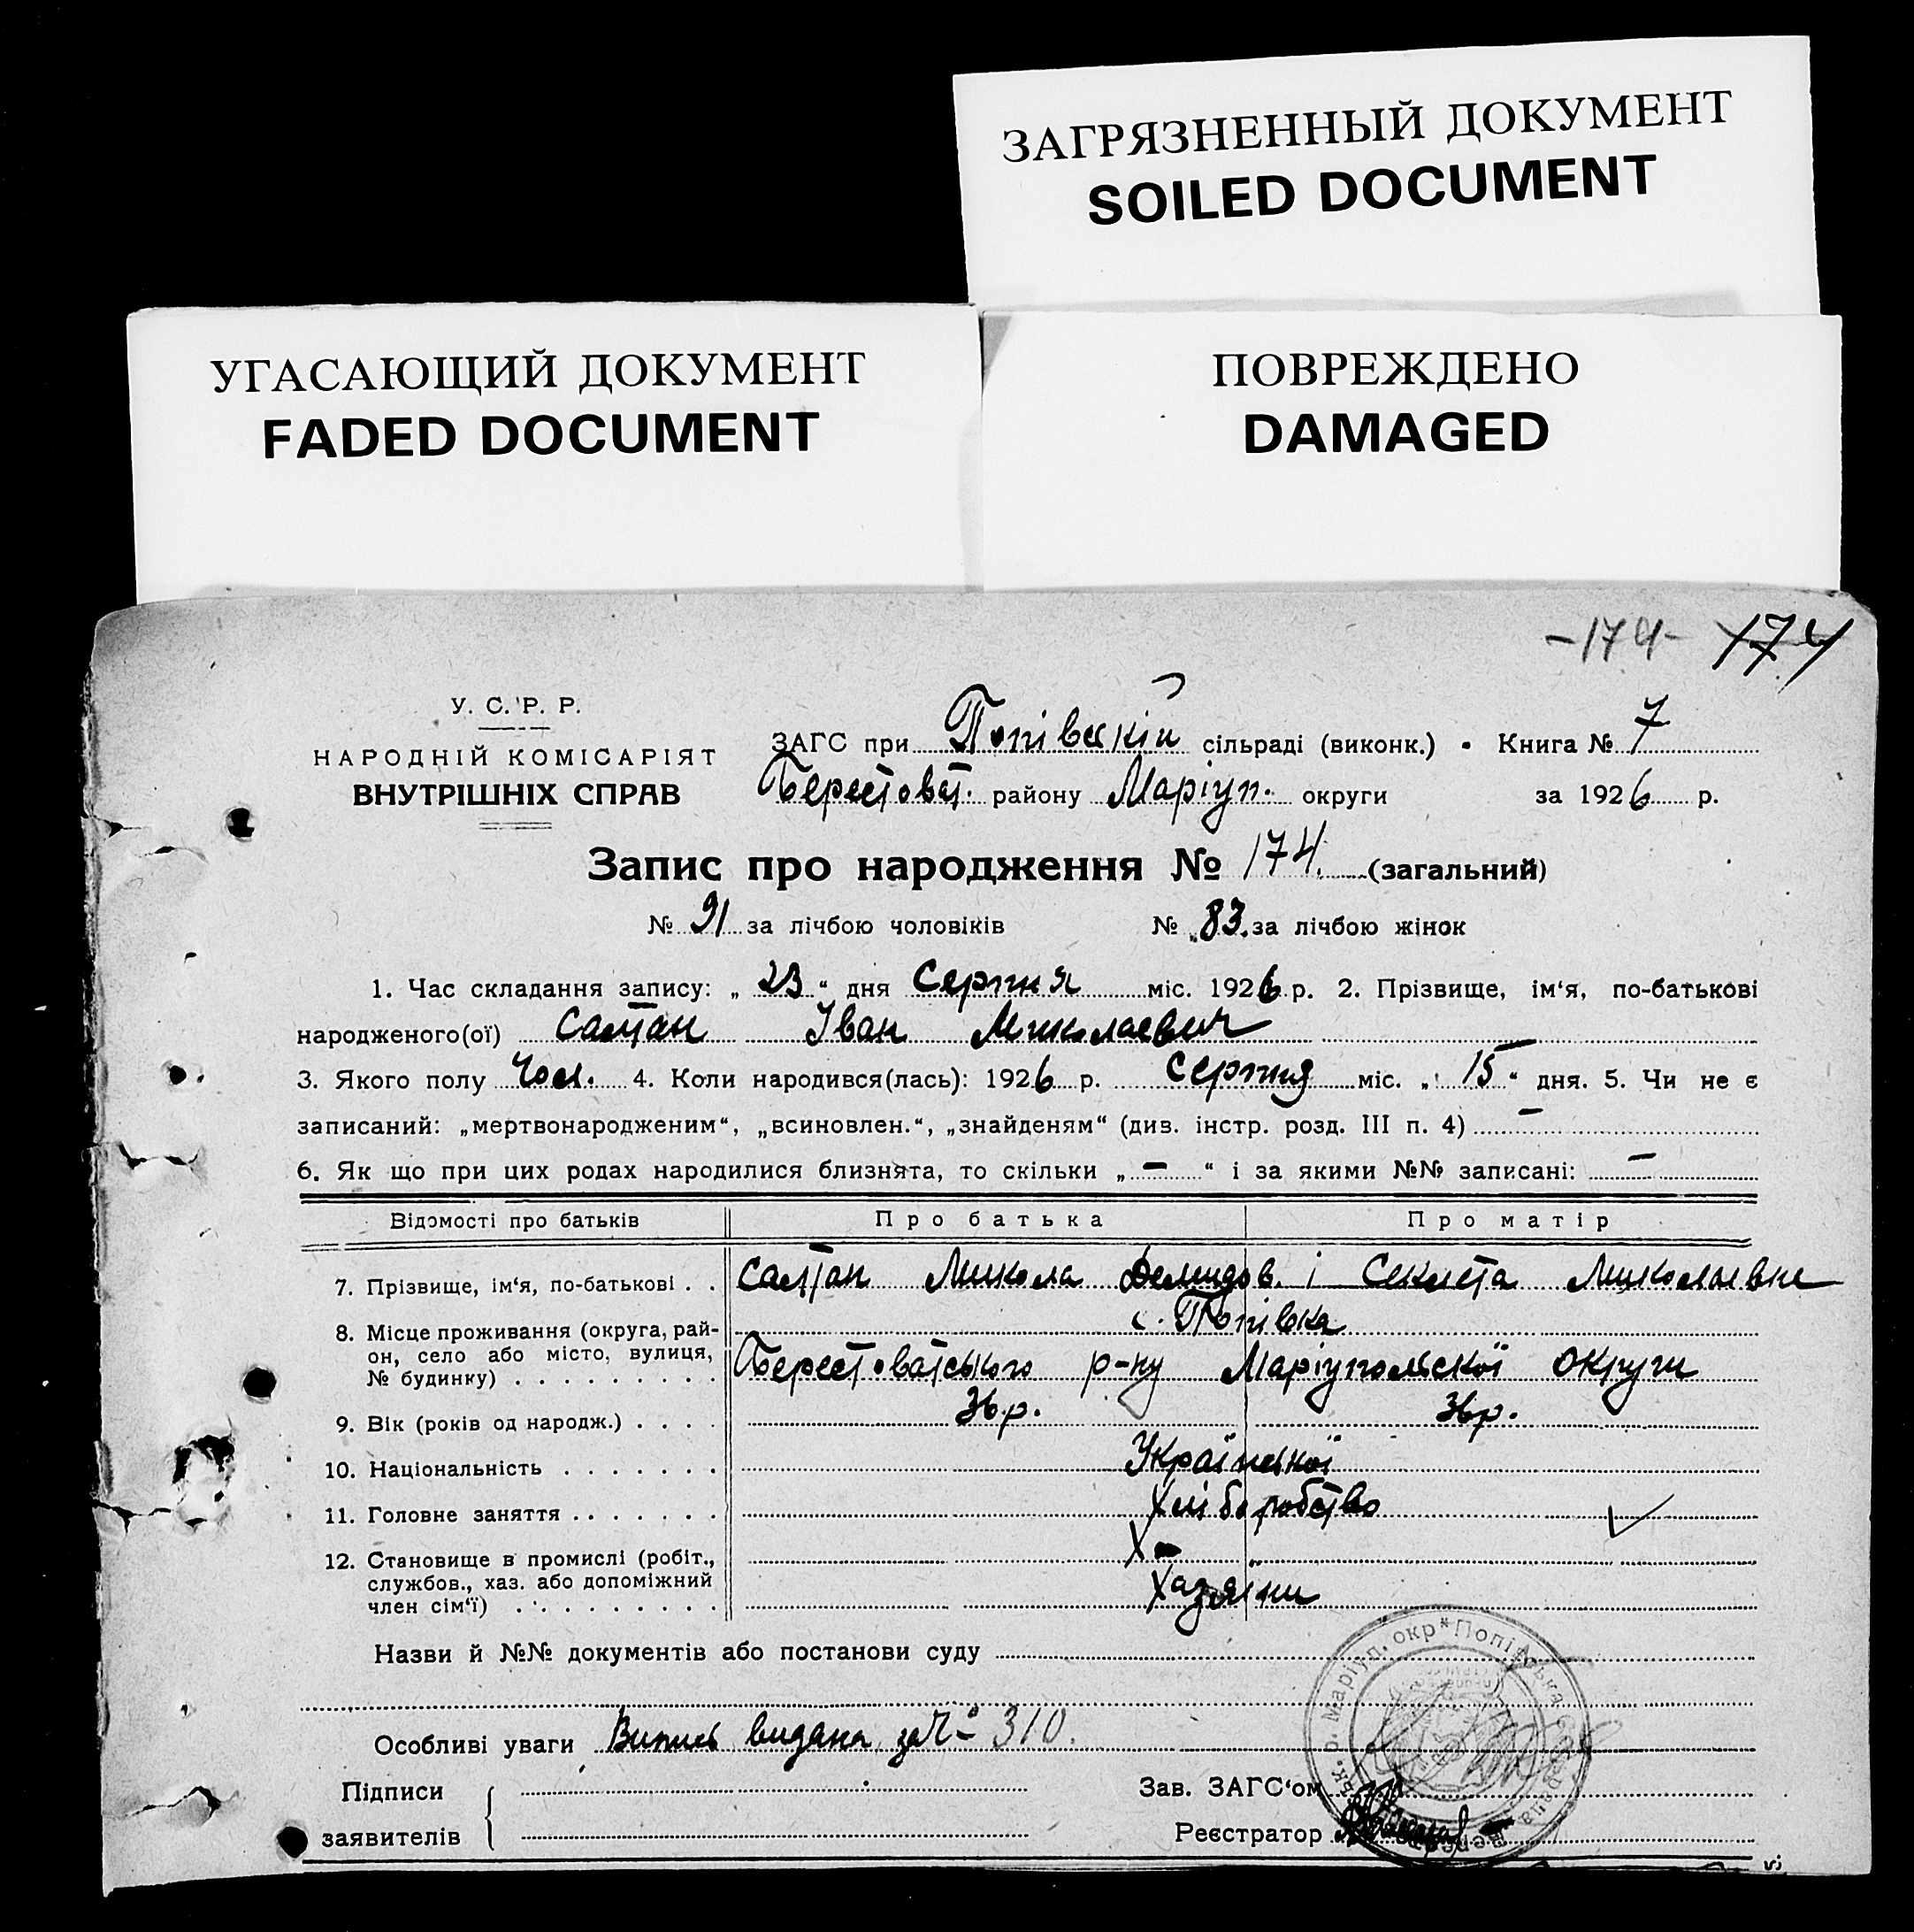 ЗАГРЯЗНЕННЫЙ ДОКУМЕНТ
SOILED DOCUMENT
УГАСАЮЩИЙ ДОКУМЕНТ
FADED DOCUMENT
ПОВРЕЖДЕНО
DAMAGED
-174- 174
У. С. Р. Р.
НАРОДНІЙ КОМІСАРІЯТ
ВНУТРІШНІХ СПРАВ
ЗАГС при Попівській сільраді (виконк.) • Книга № 7
Берестоват. району Маріуп. округи за 1926 р.
Запис про народження № 174. (загальний)
№ 91 за лічбою чоловіків № 83. за лічбою жінок
1. Час складання запису: „ 23 “ дня Серпня міс. 1926 р. 2. Прізвище, ім‘я, по-батькові
народженого(ої) Салтан Іван Миколаевич
3. Якого полу Чол. 4. Коли народився(лась): 1926 р. Серпня міс. „ 15 “ дня. 5. Чи не є
записаний: „мертвонародженим“, „всиновлен.“, „знайденям“ (див. інстр. розд. III п. 4) –
6. Як що при цих родах народилися близнята, то скільки „ – “ і за якими №№ записані: –
Відомості про батьків Про батька Про матір
7. Прізвище, ім‘я, по-батькові . . Салтан Микола Демидов. і Секлета Миколаевна
8. Місце проживання (округа, рай- с. Попівка
он, село або місто, вулиця,
№ будинку) . . . . . . . . . Берестоватського р-ну Маріупольскої округи
9. Вік (років од народж.) . . . . 36 р. 36 р.
10. Національність . . . . . . . Української
11. Головне заняття . . . . . . . Хліборобство
12. Становище в промислі (робіт.,
службов., хаз. або допоміжний
член сім‘ї) . . . . . . . . . . Хазяїни
Назви й №№ документів або постанови суду
Особливі уваги Випись видана за № 310.
Підписи
заявителів
Зав. ЗАГС‘ом
Реєстратор
Маріуп. окр * Попівська
5.